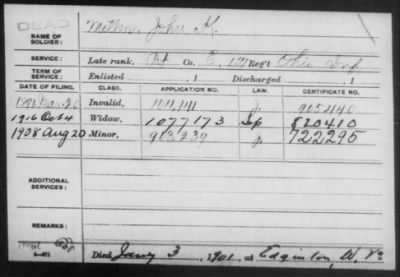 DEAD
NAME OF SOLDIER: John H.
SERVICE: Late rank, Pvt Co. E, 121 Reg't Ohio Inf
TERM OF SERVICE: Enlisted , 1 Discharged , 1
DATE OF FILING. CLASS. APPLICATION NO. LAW. CERTIFICATE NO.
Invalid,
1916 Oct 4 Widow, 1077173 820410
1908 Aug 20 Minor, 903239 722295
ADDITIONAL SERVICES:
REMARKS:
Died Jany 3, 1901, at W. Va